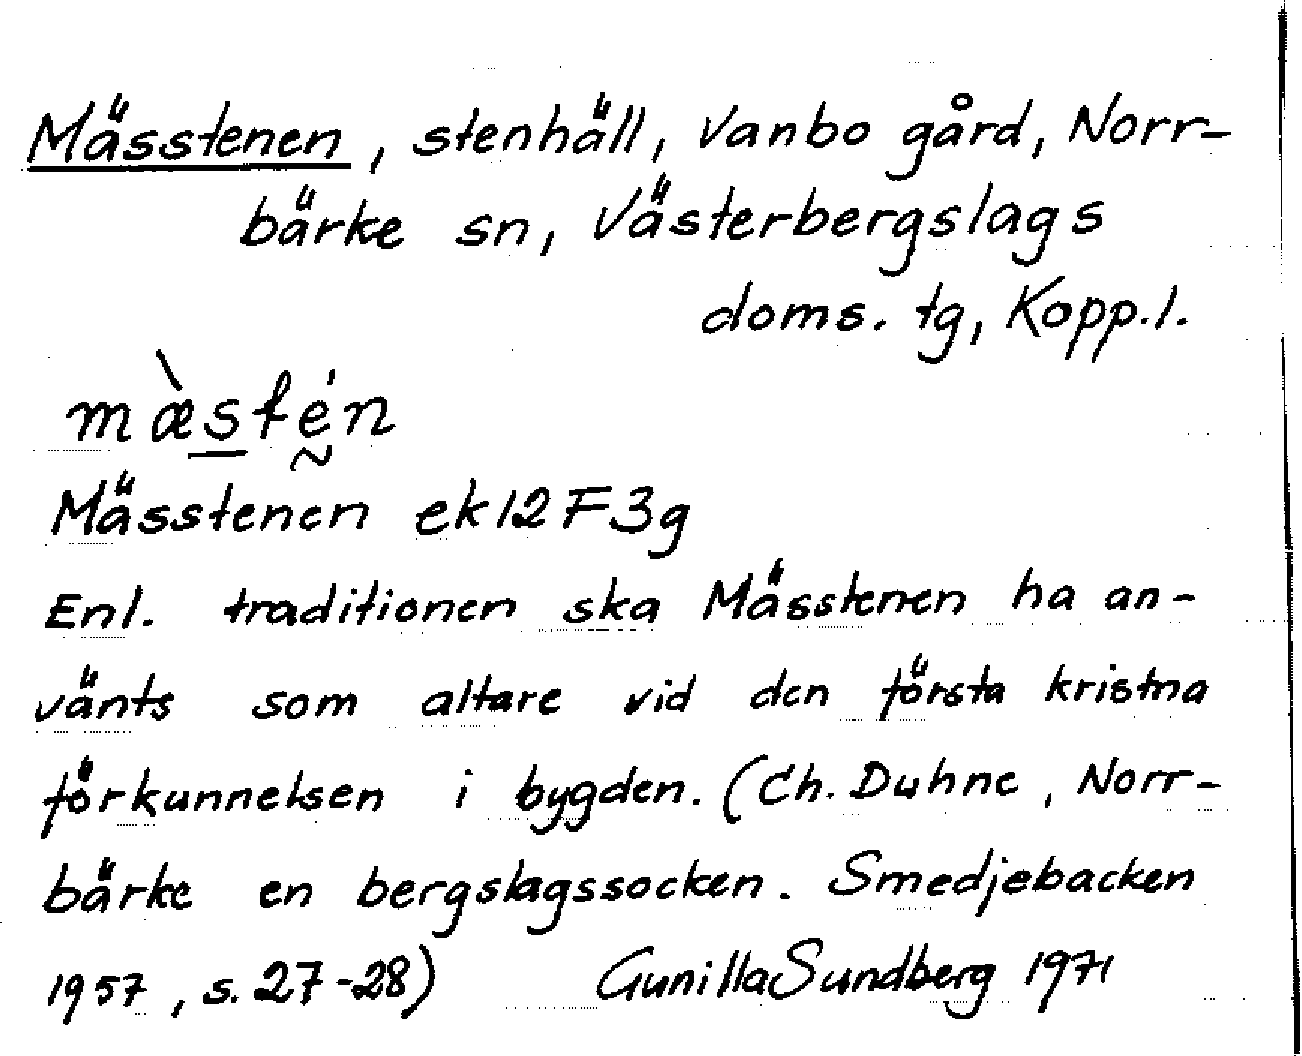 Mässtenen, stenhäll, Vanbo gård, Norr-
bärke sn, Västerbergslags
doms. tg, Kopp. l.
mæ̀stén
Mässtenen ek 12F3g
Enl. traditionen ska Mässtenen ha an-
vänts som altare vid den första kristna
förkunnelsen i bygden. (Ch. Duhne, Norr-
bärke en bergslagssocken. Smedjebacken
1957, s. 27-28) Gunilla Sundberg 1971